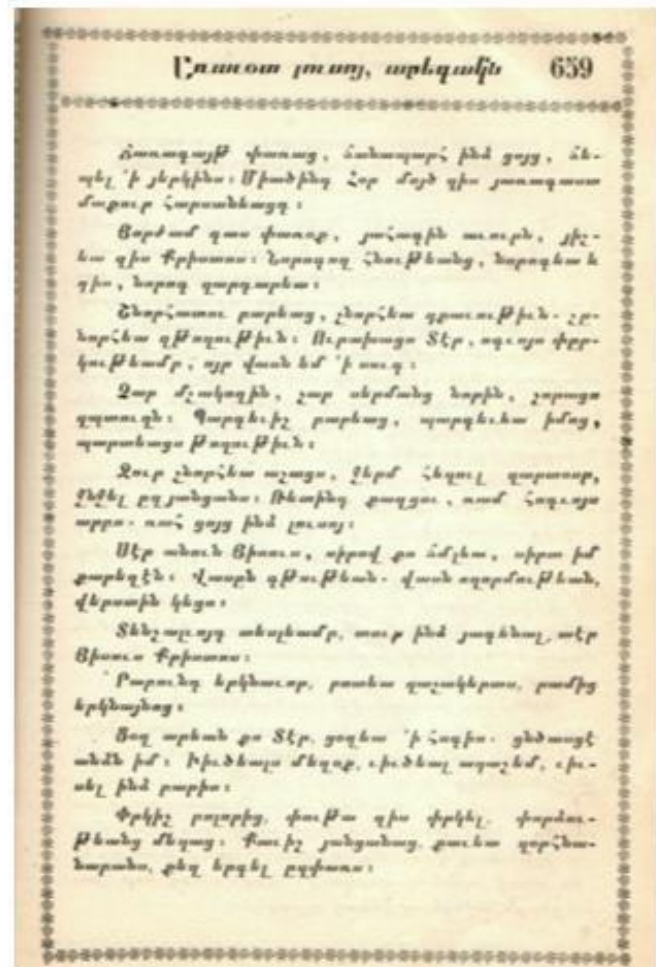 Առաւօտ լուսոյ, արեգակն 659
Ճառագայթ փառաց, ճանապարհ ինձ ցոյց, ճե-
պել ՚ի յերկինս։ Միածինդ Հօր մոյծ զիս յառագաստ
մաքուր հարսանեացդ։
Յորժամ գաս փառօք, յահագին աւուրն, յիշ-
եա զիս Քրիստոս։ Նորոգող հնութեանց, նորոգեա և
զիս, նորոգ զարդարեա։
Շնորհատու բարեաց, շնորհեա զքաւութիւն. շը-
նորհեա զթողութիւն։ Ուրախացո Տէր, ոգւոյս փըր-
կութեամբ, ոյր վասն եմ ՚ի սուգ։
Չար մշակողին, չար սերմանց նորին, չորացո
զպտուղն։ Պարգեւիչ բարեաց, պարգեւեա իմոց,
պարտեացս թողութիւն։
Ջուր շնորհեա աչացս, ջերմ հեղուլ զարտօսր,
ջնջել ըզյանցանս։ Ռետինդ քաղցու, ռամ հոգւոյս
արբո. ռահ ցոյց ինձ լուսոյ։
Սէր անուն Յիսուս, սիրով քո ճմլեա, սիրտ իմ
քարեղէն։ Վասն գթութեան. վասն ողորմութեան,
վերստին կեցո։
Տենչալւոյդ տեսլեամբ, տուր ինձ յագենալ, տէր
Յիսուս Քրիստոս։
Րաբունդ երկնաւոր, րտտեա զաշակերտս, րամից
երկնայնոց։
Ցօղ արեան քո Տէր, ցօղեա ՚ի հոգիս. ցնծասցէ
անձն իմ։ Իւծեալս մեղօք, ւիւծեալ աղաչեմ, ւիւ-
սել ինձ բարիս։
Փրկիչ բոլորից, փութա զիս փրկել. փորձու-
թեանց մեղաց։ Քաւիչ յանցանաց, քաւեա զօրհնա-
նարանս, քեզ երգել ըզփառս։